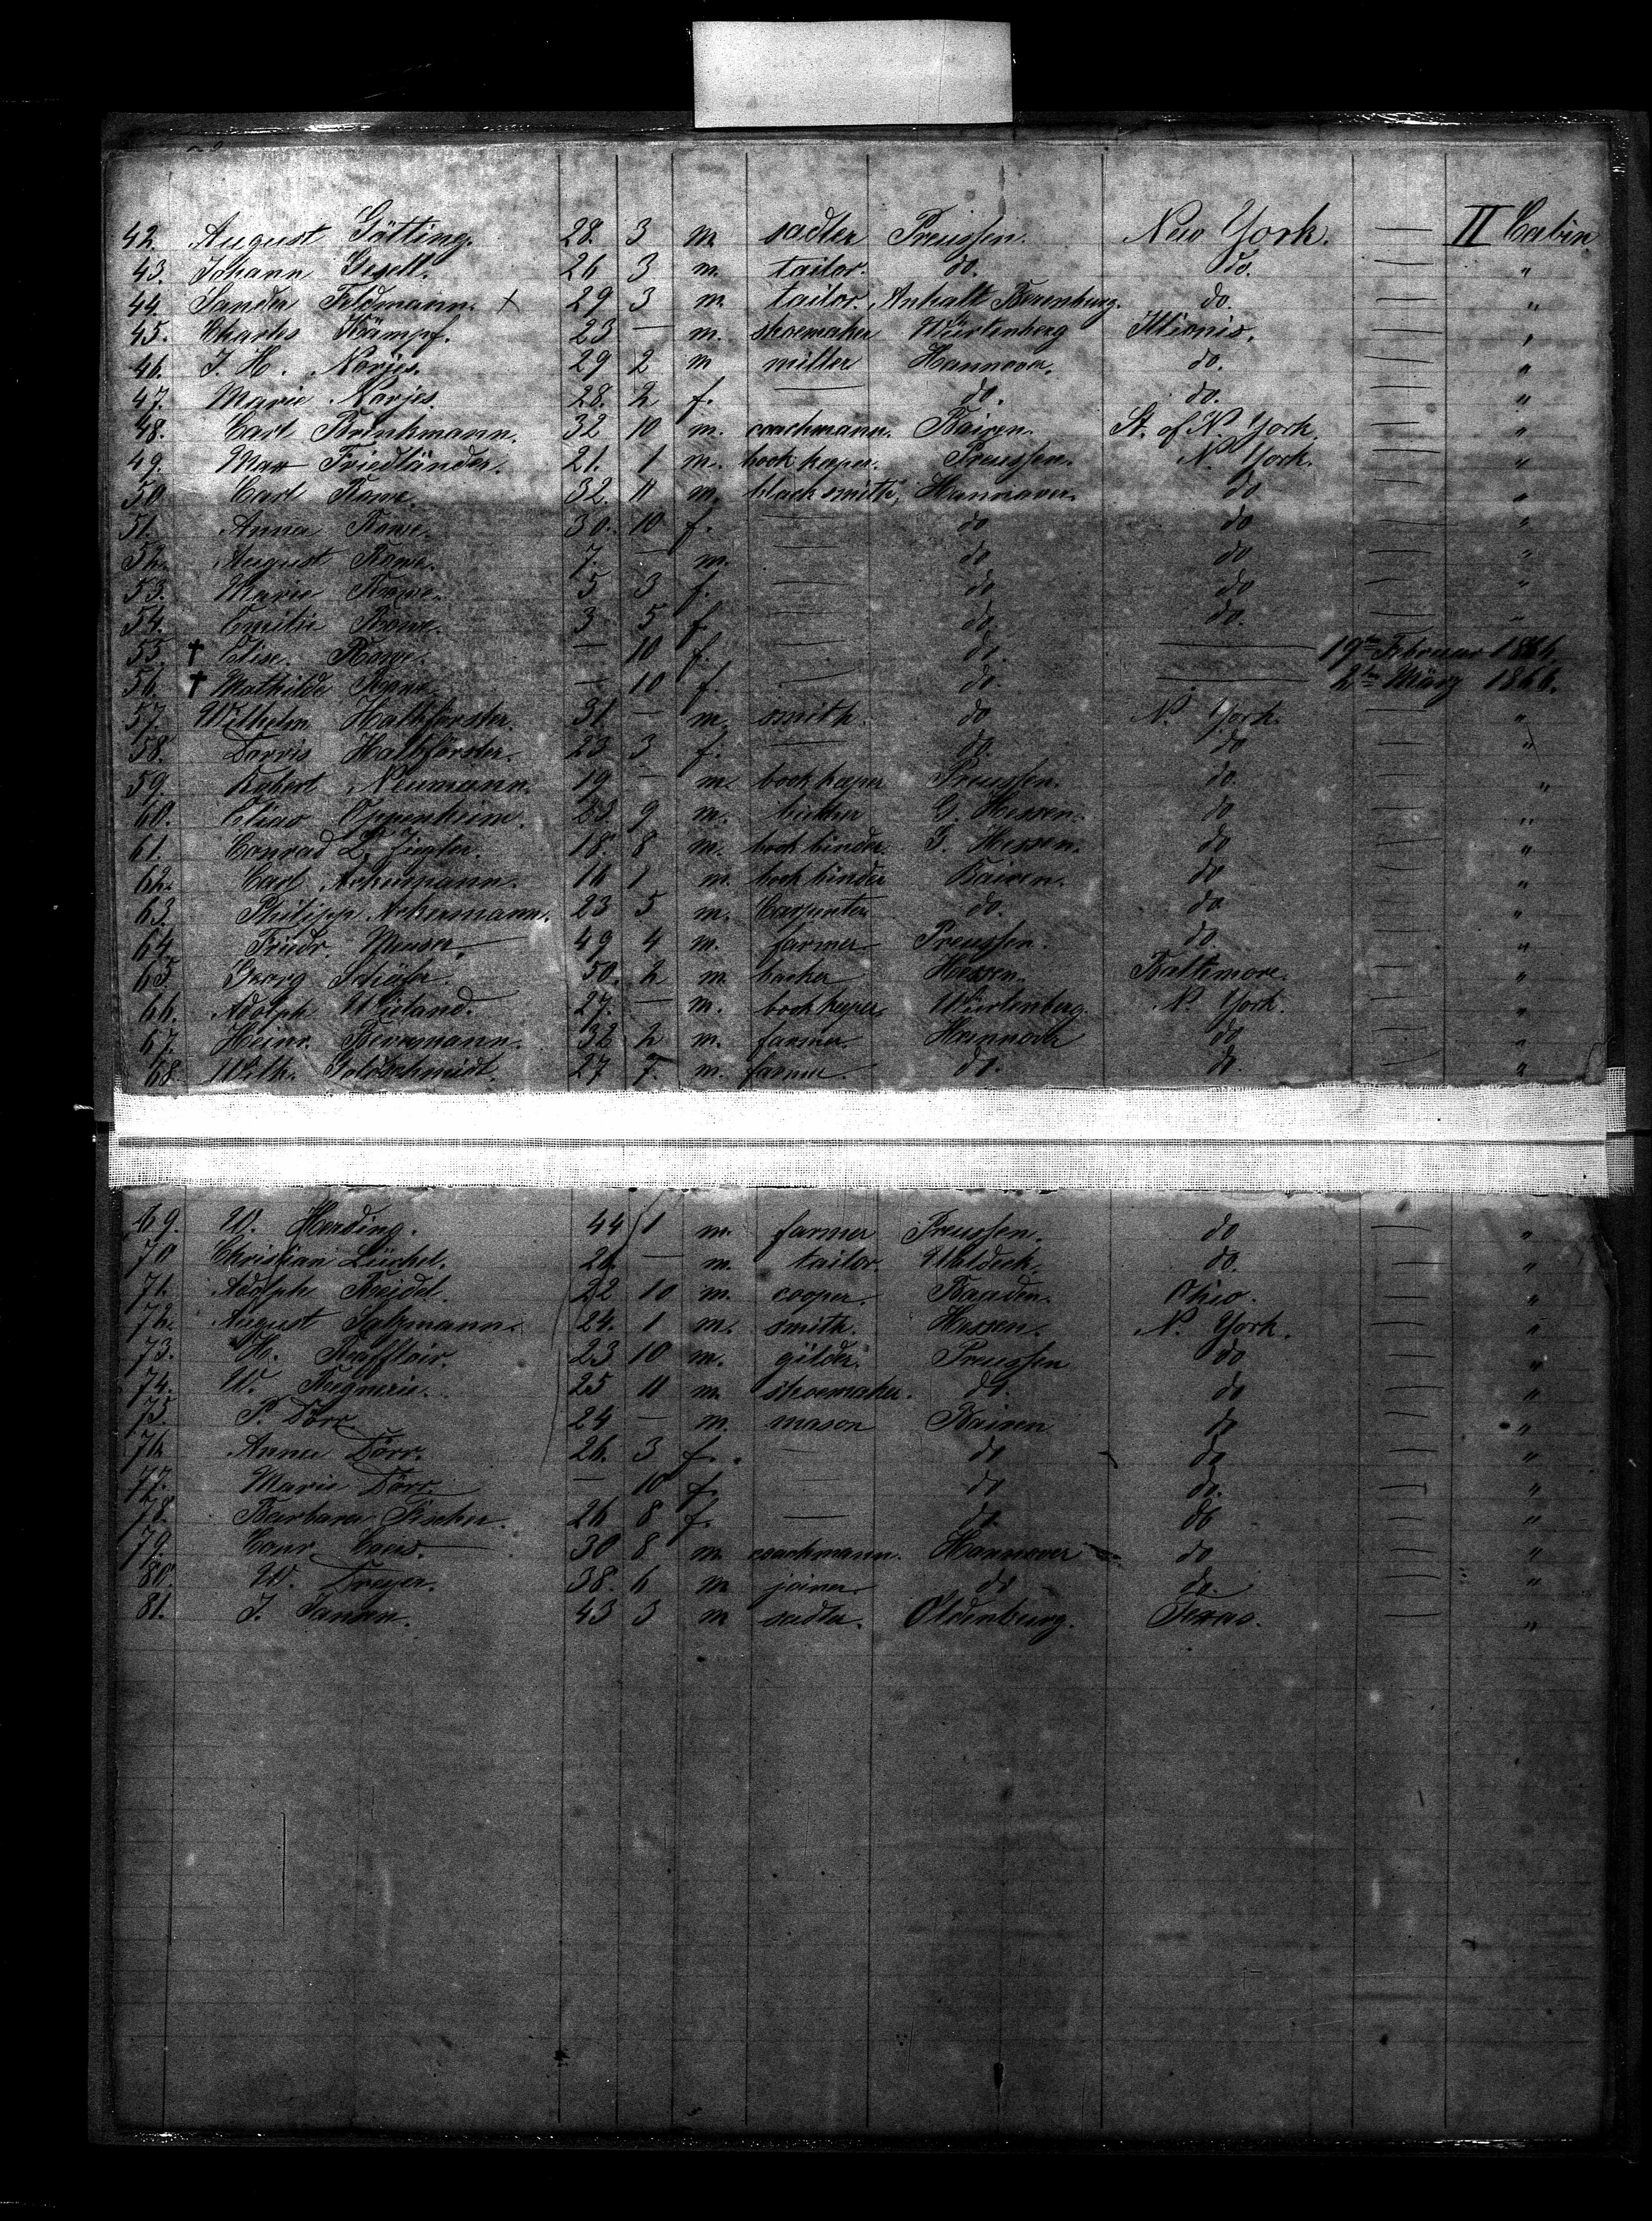 42. August Götting. 28. 3 m. sadler Preussen. New York. — II Cabin
43. Johann Gesell. 26 3 m. tailor. do. do. — "
44. Sander Feldmann. x 29 3 m. tailor. Anhalt Berenburg. do. — "
45. Charles Kämpf. 23 — m. shoemaker Würtenberg Illionis. — "
46. J. H. Norjes. 29 2 m miller Hannover. do. — "
47. Marie Norjes. 28. 2 f. — do. do. — "
48. Carl Brinkmann. 32 10 m. coachmann. Bairen. St. of N. York. — "
49. Max Friedländer. 21. 1 m. book keeper. Preussen. N. York. — "
50. Carl Rowe. 32. 11 m. black smith, Hannover. do — "
51. Anna Rowe. 30. 10 f. — do do — "
52. August Rowe. 7. — m. — do do — "
53. Marie Rowe. 5 3 f. — do do — "
54. Emilie Rowe. 3 5 f — do. do. — "
55. † Elise. Rowe. — 10 f. — do. — 19ten Februar 1866.
56. † Mathilde Rowe. — 10 f. — do. — 2ten März 1866.
57. Wilhelm Halbförster. 31 — m. smith. do N. York. — "
58. Dorris Halbförster. 23 3 f. — do. do — "
59. Robert Neumann. 19 — m. book keeper Preussen. do. — "
60. Elias Oppenheim. 23. 9 m. G. Hessen. do — "
61. Conrad L. Ziegler. 18. 8 m. book binder G. Hessen. do — "
62. Carl Ackermann. 16 7 m. book binder Bairen. do — "
63. Philipp Ackermann. 23 5 m. Carpenter do. do — "
64. Friedr. Meuser, 49 4 m. farmer Preussen. do. — "
65. Georg Schäfer. 50. 2 m. backer Hessen. Baltimore. — "
66. Adolph Wieland. 27. — m. book keeper Würtenberg. N. York. — "
67. Heinr. Bermann. 32 2 m. farmer. Hannover do — "
68 Wilh. Goldschmidt. 27 7. m. farmer. do. do. — "
69. W. Harding. 44 1 m. farmer Preussen. do — "
70 Christian Lüchel. — m. tailor. Waldeck. do. — "
71. Adolph Reidel. 22 10 m. cooper. Baaden. Ohio. — "
72. August Salzmann. 24. 1 m. smith. Hessen. N. York. — "
73. H. Raffloir. 23 10 m. gilder. Preussen do — "
74. W. 25 11 m. shoemaker. do. do — "
75. P. Dörr 24 — m. mason Bairen do — "
76 Anna Dörr. 26. 3 f. — do do — "
77. Marie Dörr — 10 f. — do do. — "
78. Barbara Fischer. 26 8 f. — do. do — "
79. Conr. 30 8 m. coachmann. Hannover do — "
80. W. Dreyer. 38. 6 m joiner do do. — "
81. J. Janssen. 43 3 m sadler. Oldenburg. Texas. — "